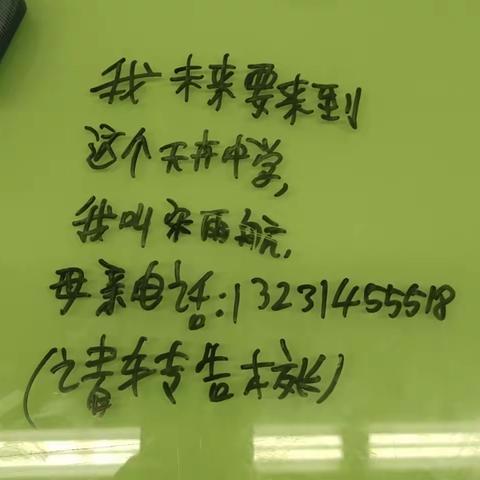 我未来要来到
这个天卉中学,
我叫宋雨航,
母亲电话:13231455518
(请转告校长)